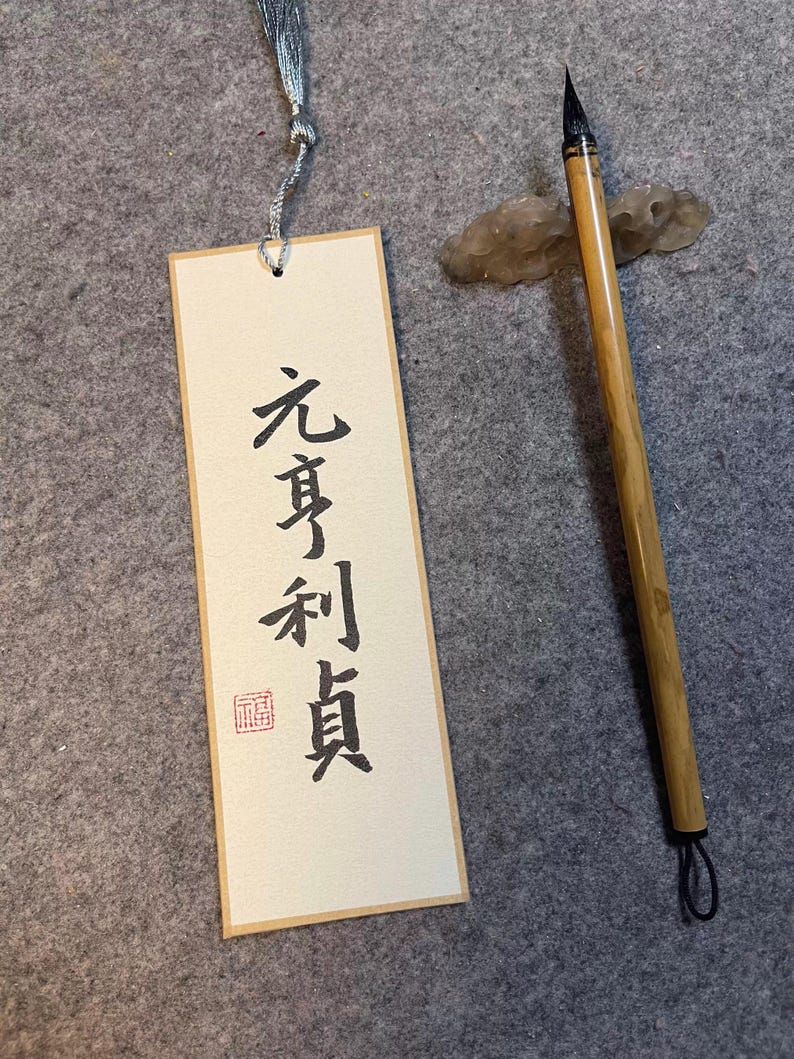 元亨利貞
福